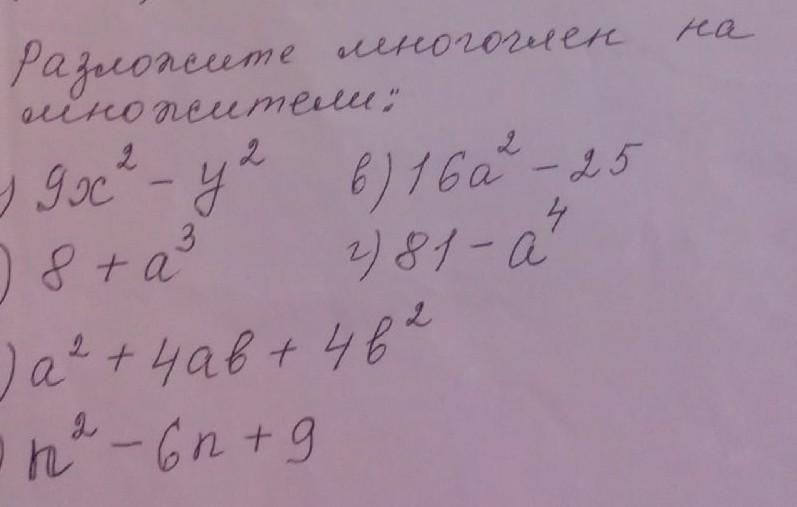 Разложите многочлен на
множители:
) 9x² - y² в) 16a² - 25
) 8 + a³ г) 81 - a⁴
) a² + 4ab + 4b²
) n² - 6n + 9